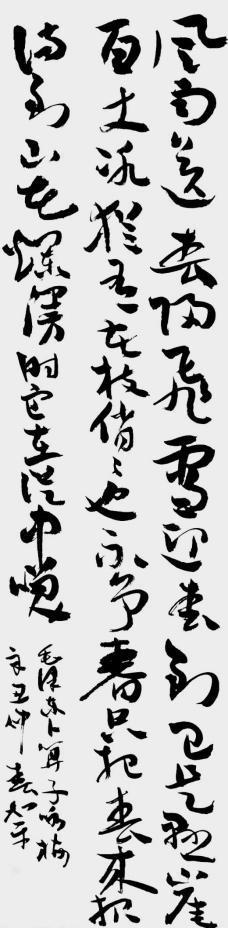 风雨送春归飞雪迎春到已是悬崖
百丈冰犹有花枝俏〻也不争春只把春来报
待到山花爛漫时它在丛中咲
毛泽东卜算子咏梅
辛丑仲春